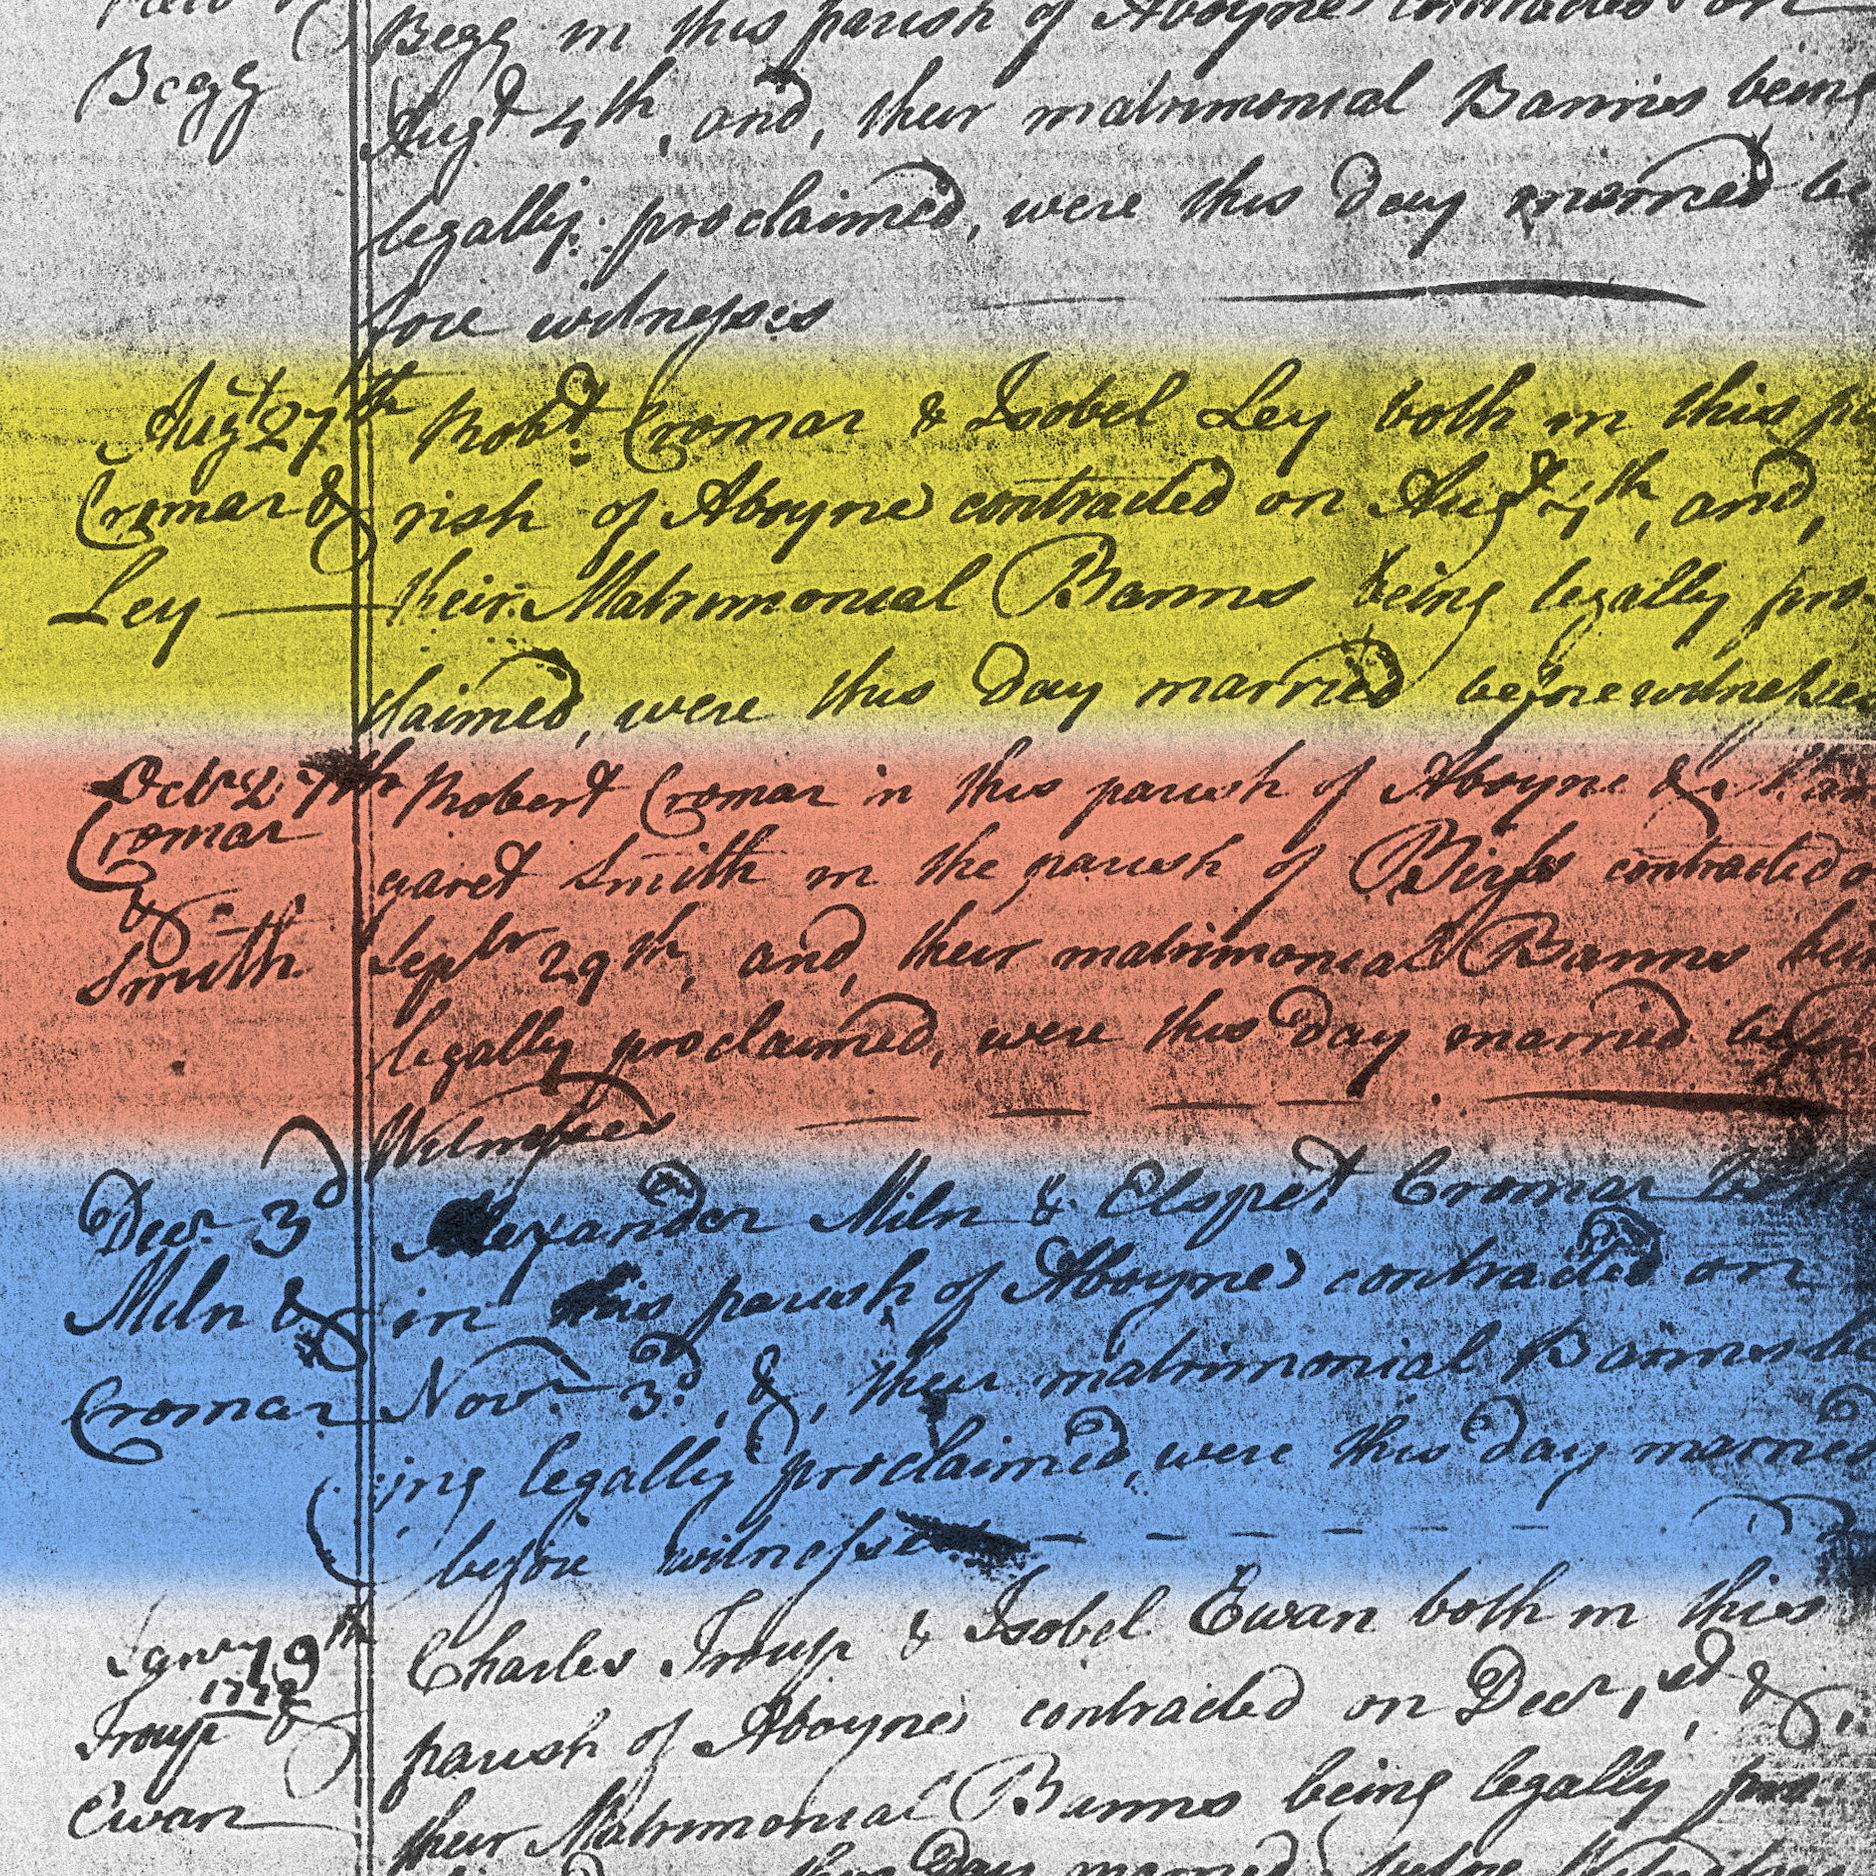 Begg Begg in this parish of Aboyne contracted on
Augt 4th, and, their matrimonial Banns being
legally proclaimed, were this day married be
fore witnesses
Augt 27th Robt Cromar & Isobel Ley both in this pa
Cromar & rish of Aboyne contracted on Augt 4th, and,
Ley — their Matrimonial Banns being legally pro
claimed, were this day married before witnesses
Octr 27th Robert Cromar in this parish of Aboyne & Mar
Cromar
& garet Smith in the parish of Birss contracted on
Smith Septr 29th, and, their matrimonial Banns being
legally proclaimed, were this day married before
Witnesses
Decr 3d Alexander Miln & Elspet Cromar both
Miln & in this parish of Aboyne contracted on
Cromar Novr 3d, &, their matrimonial Banns be
ing legally proclaimed, were this day married
before witnesses
Janry 9th Charles Troup & Isobel Ewan both in this
Troup & parish of Aboyne contracted on Decr 1st, &,
Ewan their Matrimonial Banns being legally pro
this Day married before